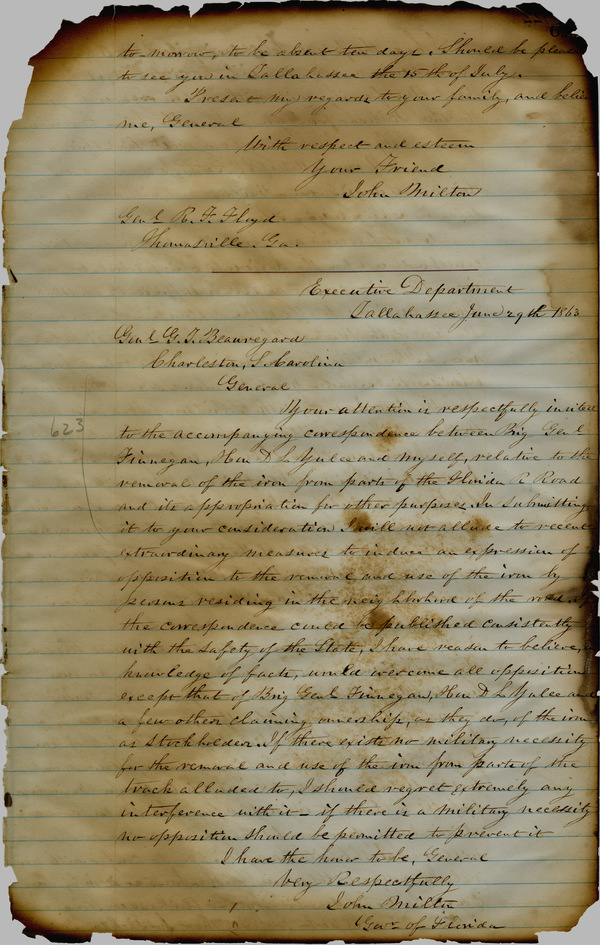 to-morrow, to be absent ten days. Should be pleas
to see you in Tallahassee the 15th of July.
Present my regards to your family, and believ
me, General
With respect and esteem
Your Friend
John Milton
Genl R. F. Floyd
Thomasville. Ga.
Executive Department
Tallahassee June 29th 1863
Genl G. T. Beauregard
Charleston, S. Carolina
General
Your attention is respectfully invited
623
to the accompanying correspondence between Brig Genl
Finnegan, Hon D L Yulee and myself, relative to the
removal of the iron from parts of the Florida R Road
and its appropriation for other purposes. In submitting
it to your consideration I will not allude to recent
extraordinary measures to induce an expression of
opposition to the removal and use of the iron by
persons residing in the neighborhood of the road
the correspondence could be published consistently
with the safety of the State, I have reason to believe,
knowledge of facts, would overcome all opposition
except that of Brig Genl Finnegan, Hon D L Yulee and
a few others claiming ownership, as they do, of the iron
as Stockholders. If there exists no military necessity
for the removal and use of the iron from parts of the
track alluded to, I should regret extremely any
interference with it - if there is a military necessity
no opposition should be permitted to prevent it
I have the honor to be, General
Very Respectfully
John Milton
Govr of Florida